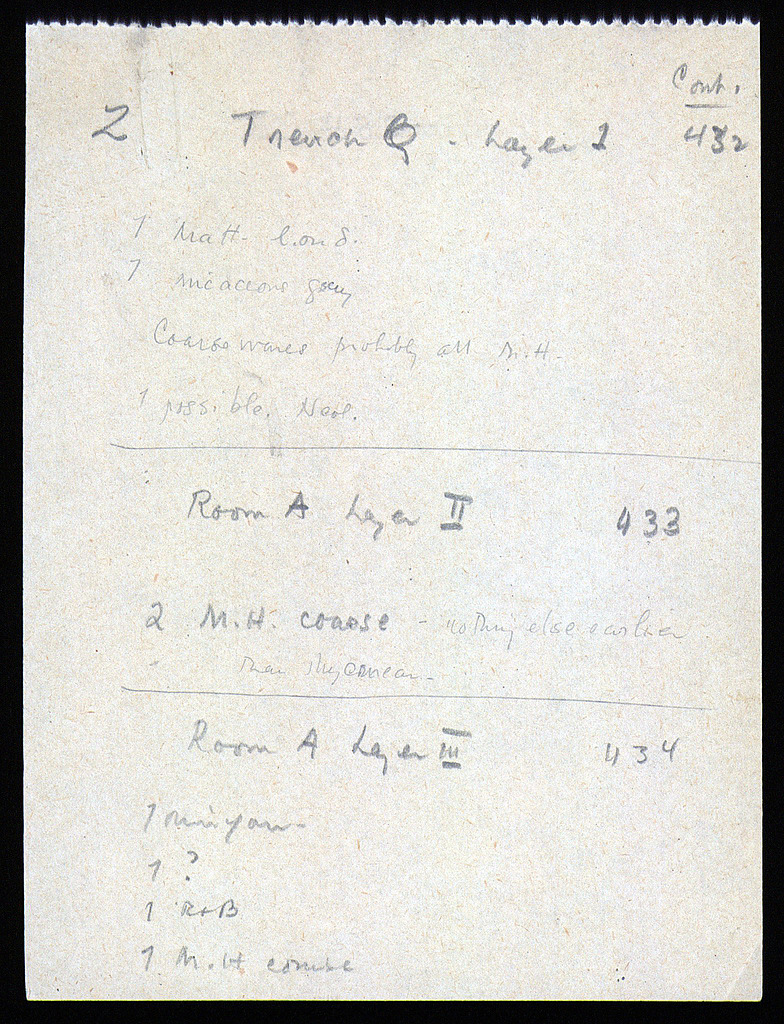 Cont.
2 Trench Q - Layer I 432
1 Matt-
1 micaceous gray
Coarse wares probably all M.H.
1 possible. Neol.
Room A Layer II 433
2 M.H. coarse - nothing else earlier
than Mycenean-
Room A Layer III 434
1 minyan-
1 ?
1 R+B
1 M.H coarse